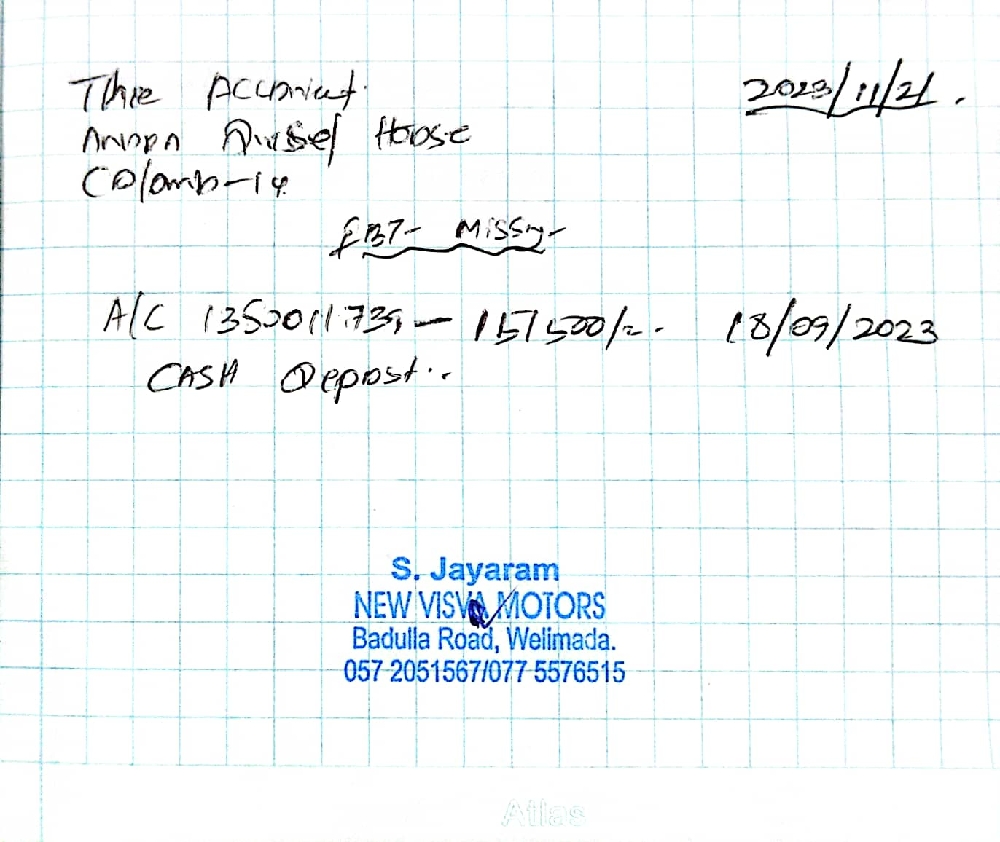 The Accountant.
2023/11/21.
House
Colomb-14
A/C 1350011739 - 157500/=. 18/09/2023
CASH Deposit..
S. Jayaram
NEW VISVA MOTORS
Badulla Road, Welimada.
057 2051567/077 5576515
Atlas